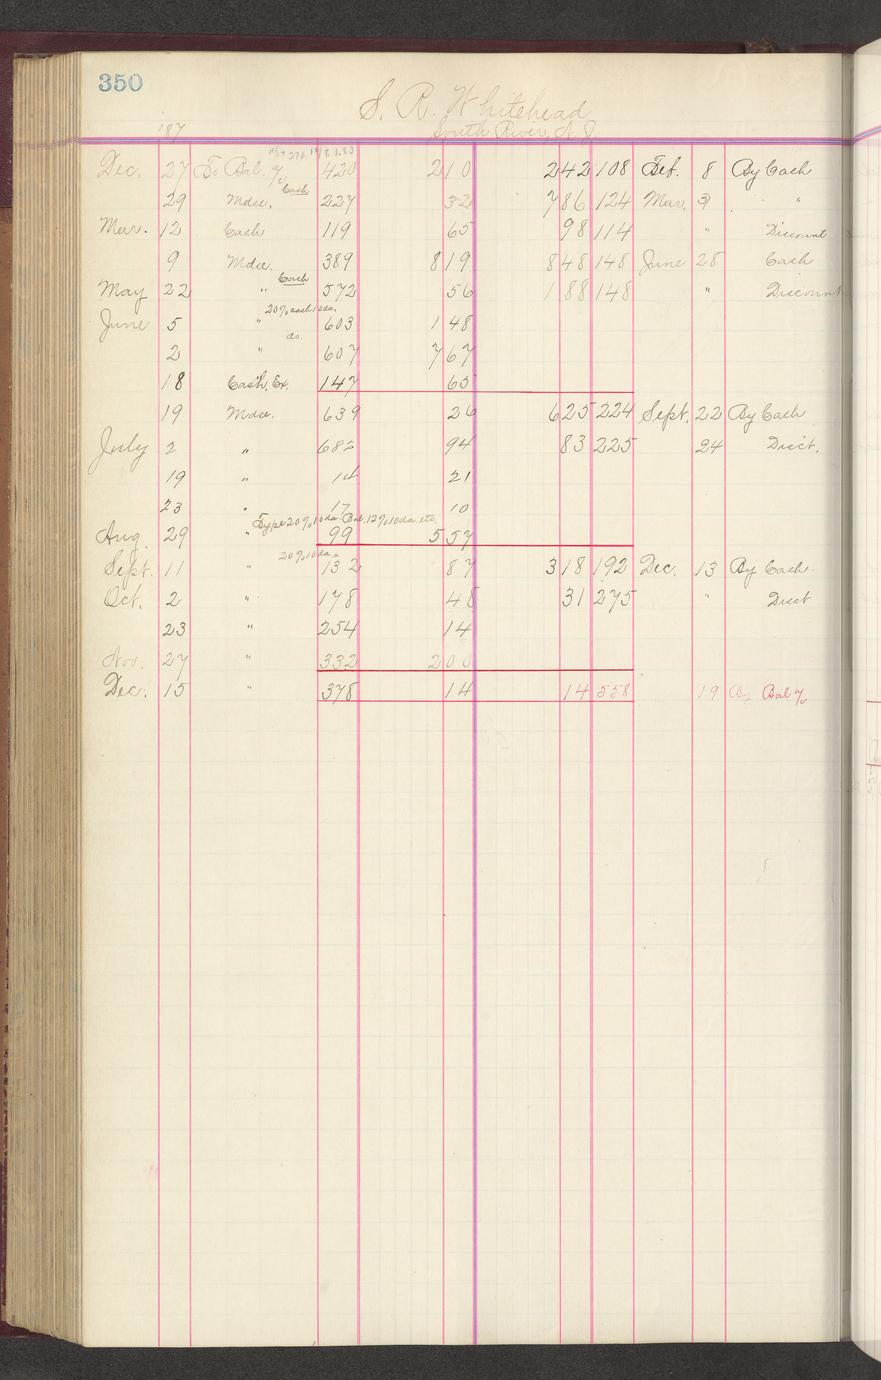 350
S. R. Whitehead
South River, N. J.
187
Dec. 27 To Bal. 420 210 242 108 Feb. 8 By Cash
Cash
29 Mdse. 227 32 786 124 Mar. 31 " "
Mar. 12 Cash 119 65 98 114 " Discount
9 Mdse. 389 819 848 148 June 28 Cash
Cash
May 22 " 572 56 188 148 " Discount
20% cash 10 da.
June 5 " 603 148
do.
2 " 607 767
18 Cash, Ex. 147 65
19 Mdse. 639 26 625 224 Sept. 22 By Cash
July 2 " 682 94 83 225 24 Disct.
19 " 14 21
23 " 17 10
Type 20% 10 da. Bal. 12% 10 da. etc
Aug. 29 " 99 557
20% 10 da.
Sept. 11 " 132 87 318 192 Dec. 13 By Cash
Oct. 2 " 178 48 31 275 " Disct
23 " 254 14
Nov. 27 " 332 200
Dec. 15 " 378 14 14 558 19 Bal